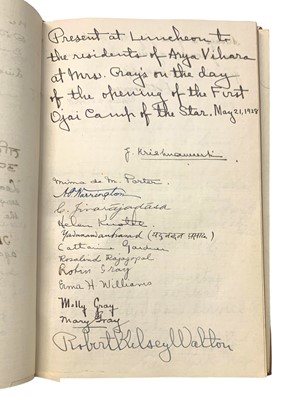 Present at Luncheon to
the residents of Arya Vihara
at Mrs. Gray's on the day
of the opening of the First
Ojai Camp of the Star. May 21, 1928
J. Krishnamurti
Mima de M. Porter.
A.P. Warrington
C. Jinarajadasa
Helen Knothe
Yadunandan Prasad
Catharine Gardner
Rosalind Rajagopal
Robin Gray
Erma H Williams
Molly Gray
Mary Gray
Robert Kelsey Walton